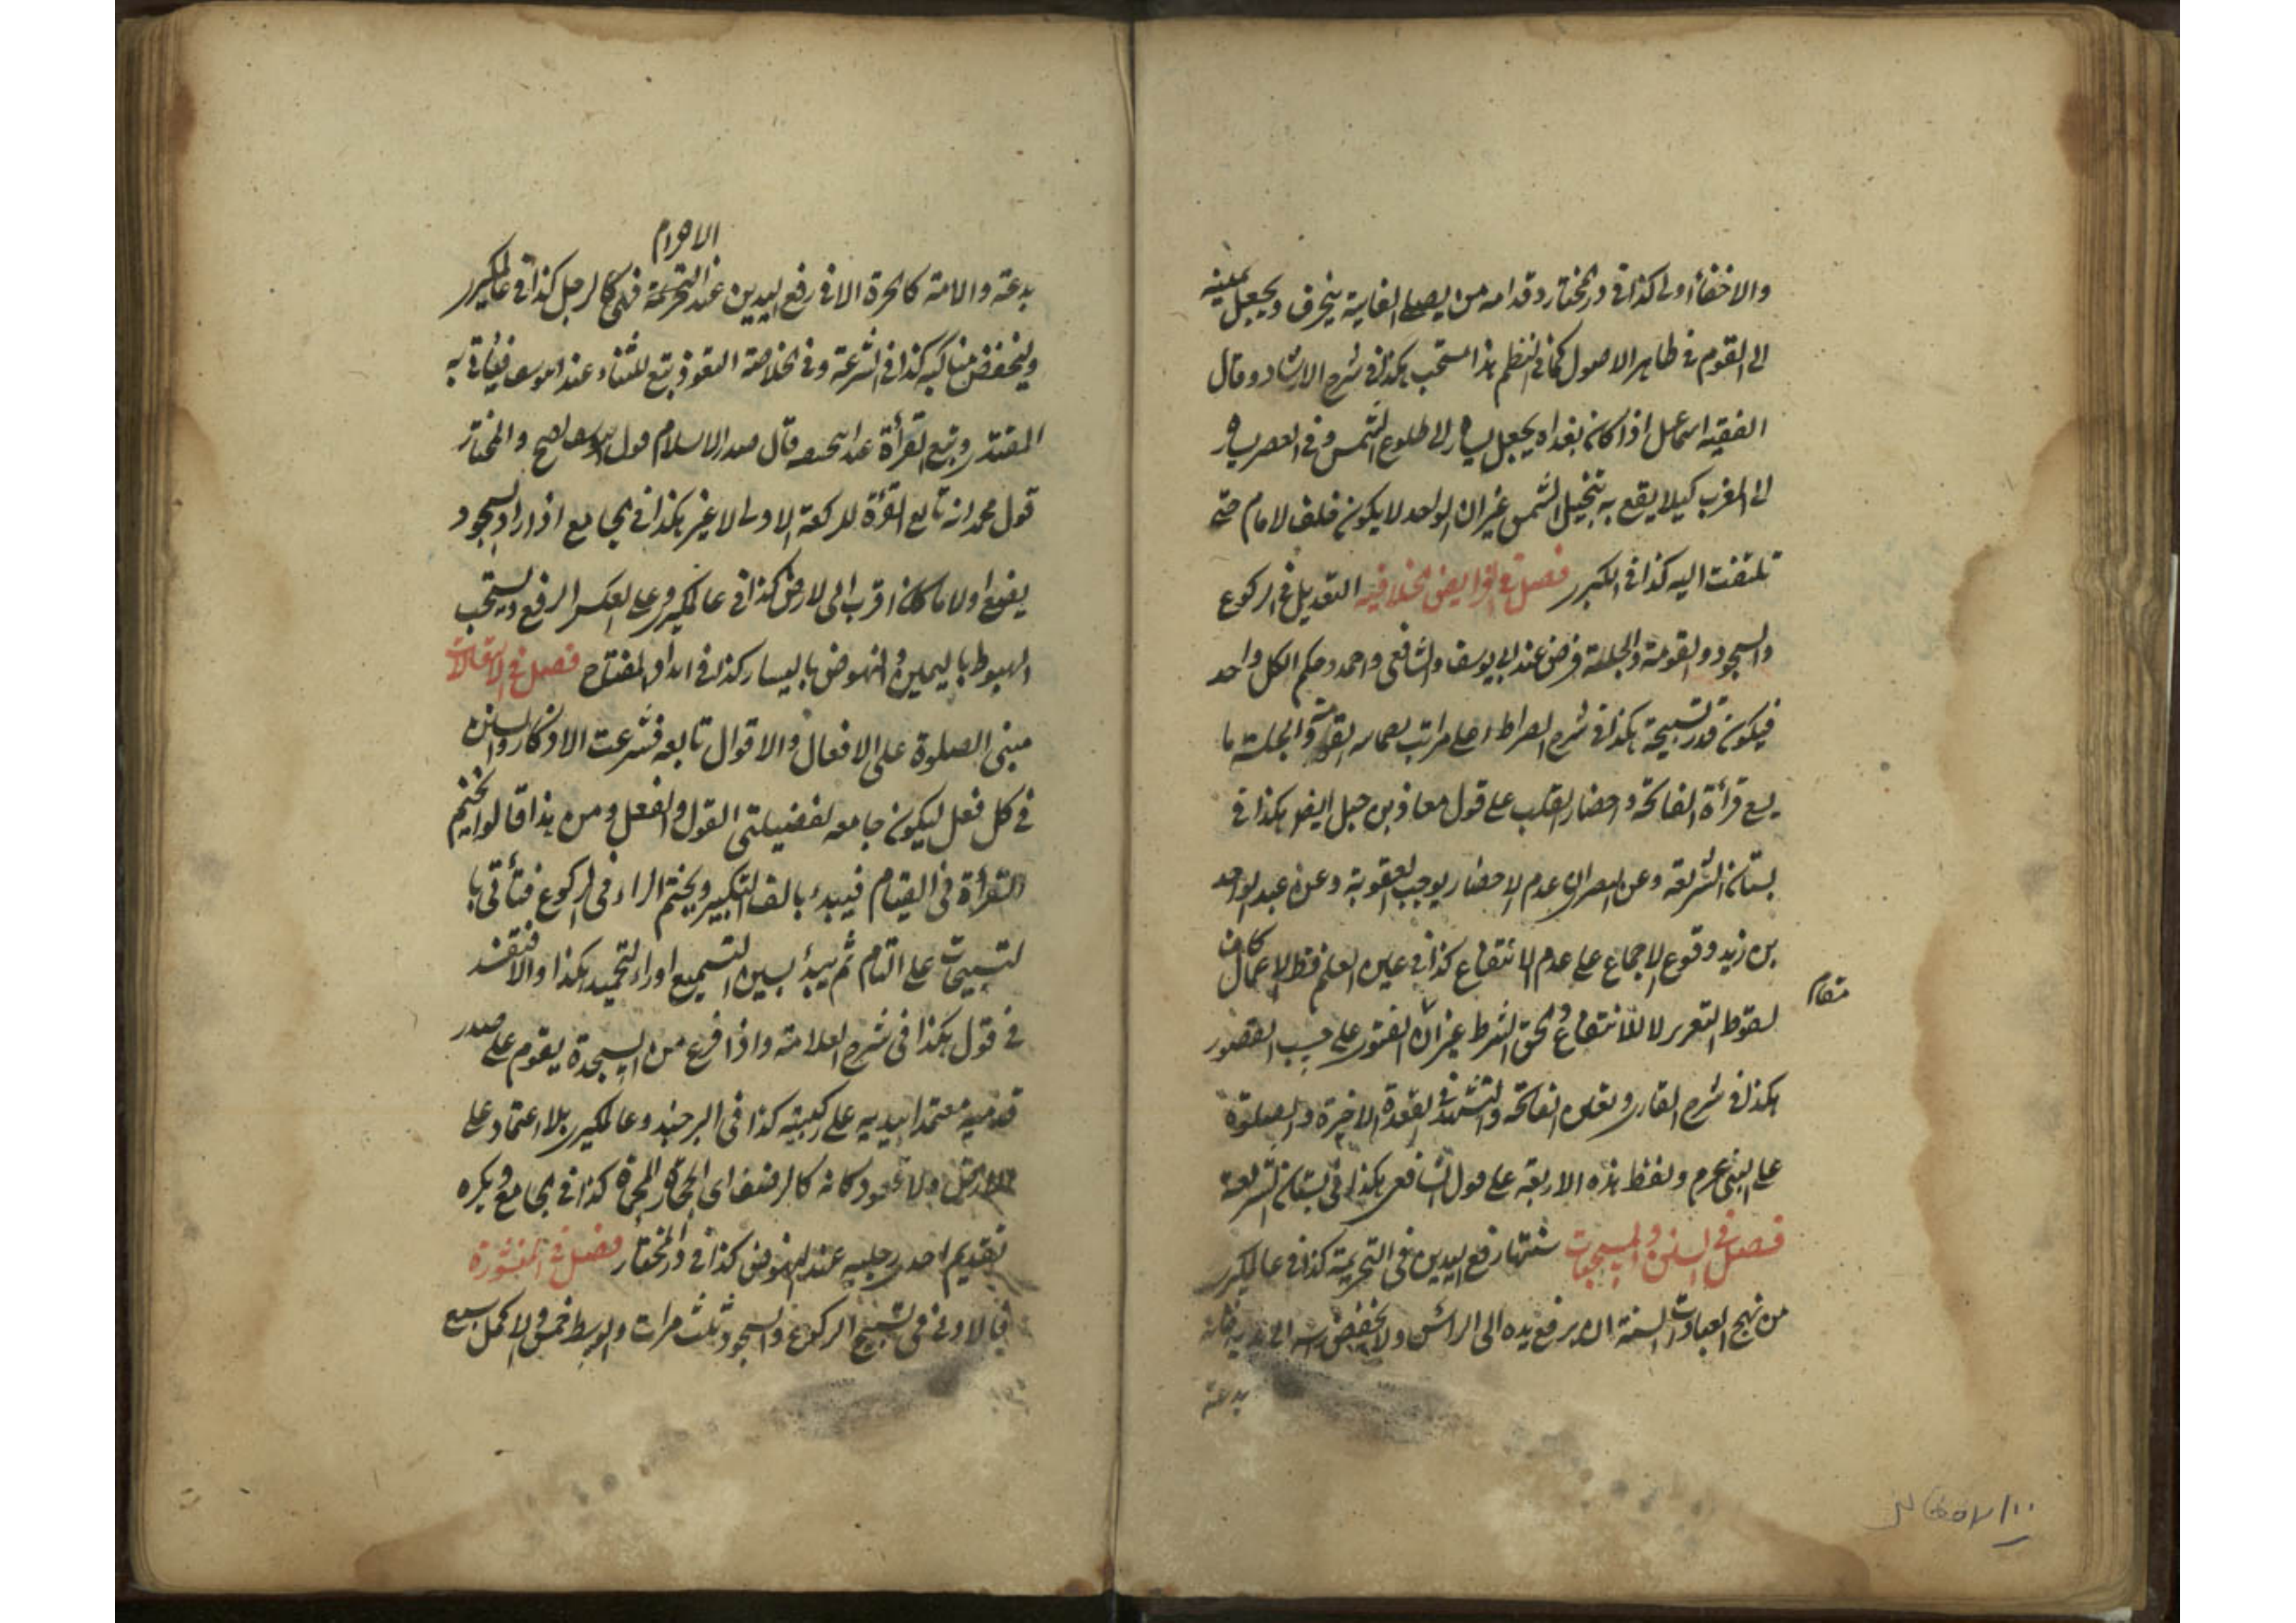 والاخفأ اولى كذا فى در المختار وقدامه من يصلى الغاية ينحرف ويجعل يمينه
الى القوم فى ظاهر الاصول كما فى النظم هذا المستحب هكذا فى شرح الارشاد وقال
الفقيه اسماعيل اذا كان بغداه يجعل يساره الى طلوع الشمس وفى العصر يساره
الى المغرب كيلا يقع به تنخيل الشمس غير ان الواحد لا يكون خلف الامام حتى
تلتفت اليه كذا فى الكبرى فصل فى الفرايض الخلافية التعديل فى الركوع
والسجود والقومة والجلسة فرض عند ابى يوسف والشافعى واحمد وحكم الكل واحد
فيكون قدر تسبيحة هكذا فى شرح الصراط اعلى مراتب القومة والجلسة ما
يسع قرأة الفاتحة واحضار القلب على قول معاذ بن جبل ايضا هكذا فى
بستان الشريعة وعن البصرى ان عدم الاحضار يوجب العقوبة وعن عبد الواحد
بن زيد وقوع الاجماع على عدم الانتفاع كذا فى عين العلم فظ الاعمال كان
مقام
لسقوط التعزير لا للانتفاع والحق الشرط غير ان الفتور على حسب القصور
هكذا فى شرح القارى وتعين الفاتحة والتشهد فى القعدة الاخيرة والصلوة
على النبى عرم ولفظ هذه الاربعة على قول الشافعى هكذا فى بستان الشريعة
فصل فى السنن والمستحبات سنتها رفع اليدين فى التحريمة كذا فى عالمكيرى
من نهج العبادت السنة ان يرفع يده الى الرأس ولا يخفض رأسه الى يديه فانه
بدعة
الاحرام
بدعة والامة كالحرة الا فى رفع اليدين عند التحريمة فهى كالرجل كذا فى عالمكيرى
وليخفض مناكبه كذا فى الشرعة وفى الخلاصة التعوذ تبع للثناء عند ابو يوسف فيأتى به
المقتدى وتبع القرأة قال صدر الاسلام قول ابو يوسف اصح والمختار
قول محمد انه تابع القرأة للركعة الاولى لا غير هكذا فى الجامع اذا اراد السجود
يضع اولا ما كان اقرب الى الارض كذا فى عالمكيرى وعلى العكس الرفع ويستحب
الهبوط باليمين والنهوض باليسار كذا فى المفتاح فصل فى الانتقالات
مبنى الصلوة على الافعال والاقوال تابعه فشرعت الاذكار والسنن
فى كل فعل ليكون جامعه لفضيلتى القول والفعل ومن هذا قالوا ليختم
القرأة فى القيام فيبدء بالف التكبير ويختم الراء فى الركوع فتأتى با
لتسبيحات على التمام ثم يبدأ بسين التسميع اوراء التحميد هكذا والا فتقند
فى قول هكذا فى شرح العلامة واذا فرغ من السجدة يقوم على صدر
قدميه معتمدا بيديه على ركبتيه كذا فى البرجندى وعالمكيرى بلا اعتماد على
الارض ولا قعود كانه كالرضف اى الحجارة المحماة كذا فى الجامع ويكره
تقديم احدى رجليه عند النهوض كذا فى در المختار فصل فى المنثورة
فالاولى فى تسبيح الركوع والسجود ثلث مرات والوسط خمس والاكمل سبع